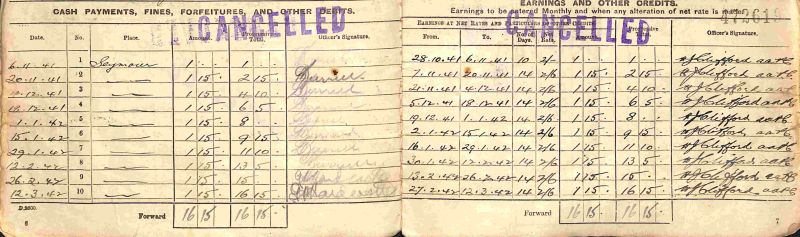 CASH PAYMENTS, FINES, FORFEITURES, AND OTHER DEBITS.
CANCELLED
Date. No. Place. Amount. Progressive Total. Officer's Signature.
6.11.41 1 Seymour 1 - 1 -
20.11.41 2 1 15 2 15
4.12.41 3 1 15 4 10
18.12.41 4 1 15 6 5
1.1.42 5 1 15 8 -
15.1.42 6 1 15 9 15
29.1.42 7 1 15 11 10
12.2.42 8 1 15 13 5
26.2.42 9 1 15 15 -
12.3.42 10 1 15 16 15
D.2600. Forward 16 15 16 15
6
EARNINGS AND OTHER CREDITS.
Earnings to be entered Monthly and when any alteration of net rate is made.
472615
CANCELLED
EARNINGS AT NET RATES AND
From. To. No. of Days. Net Rate. Amount. Progressive Total. Officer's Signature.
28.10.41 6.11.41 10 2/- 1 - 1 - Clifford
7.11.41 20.11.41 14 2/6 1 15 2 15 Clifford
21.11.41 4.12.41 14 2/6 1 15 4 10 Clifford
5.12.41 18.12.41 14 2/6 1 15 6 5 Clifford
19.12.41 1.1.42 14 2/6 1 15 8 - Clifford
2.1.42 15.1.42 14 2/6 1 15 9 15 Clifford
16.1.42 29.1.42 14 2/6 1 15 11 10 Clifford
30.1.42 12.2.42 14 2/6 1 15 13 5 Clifford
13.2.42 26.2.42 14 2/6 1 15 15 - Clifford
27.2.42 12.3.42 14 2/6 1 15 16 15 Clifford
Forward 16 15 16 15
7